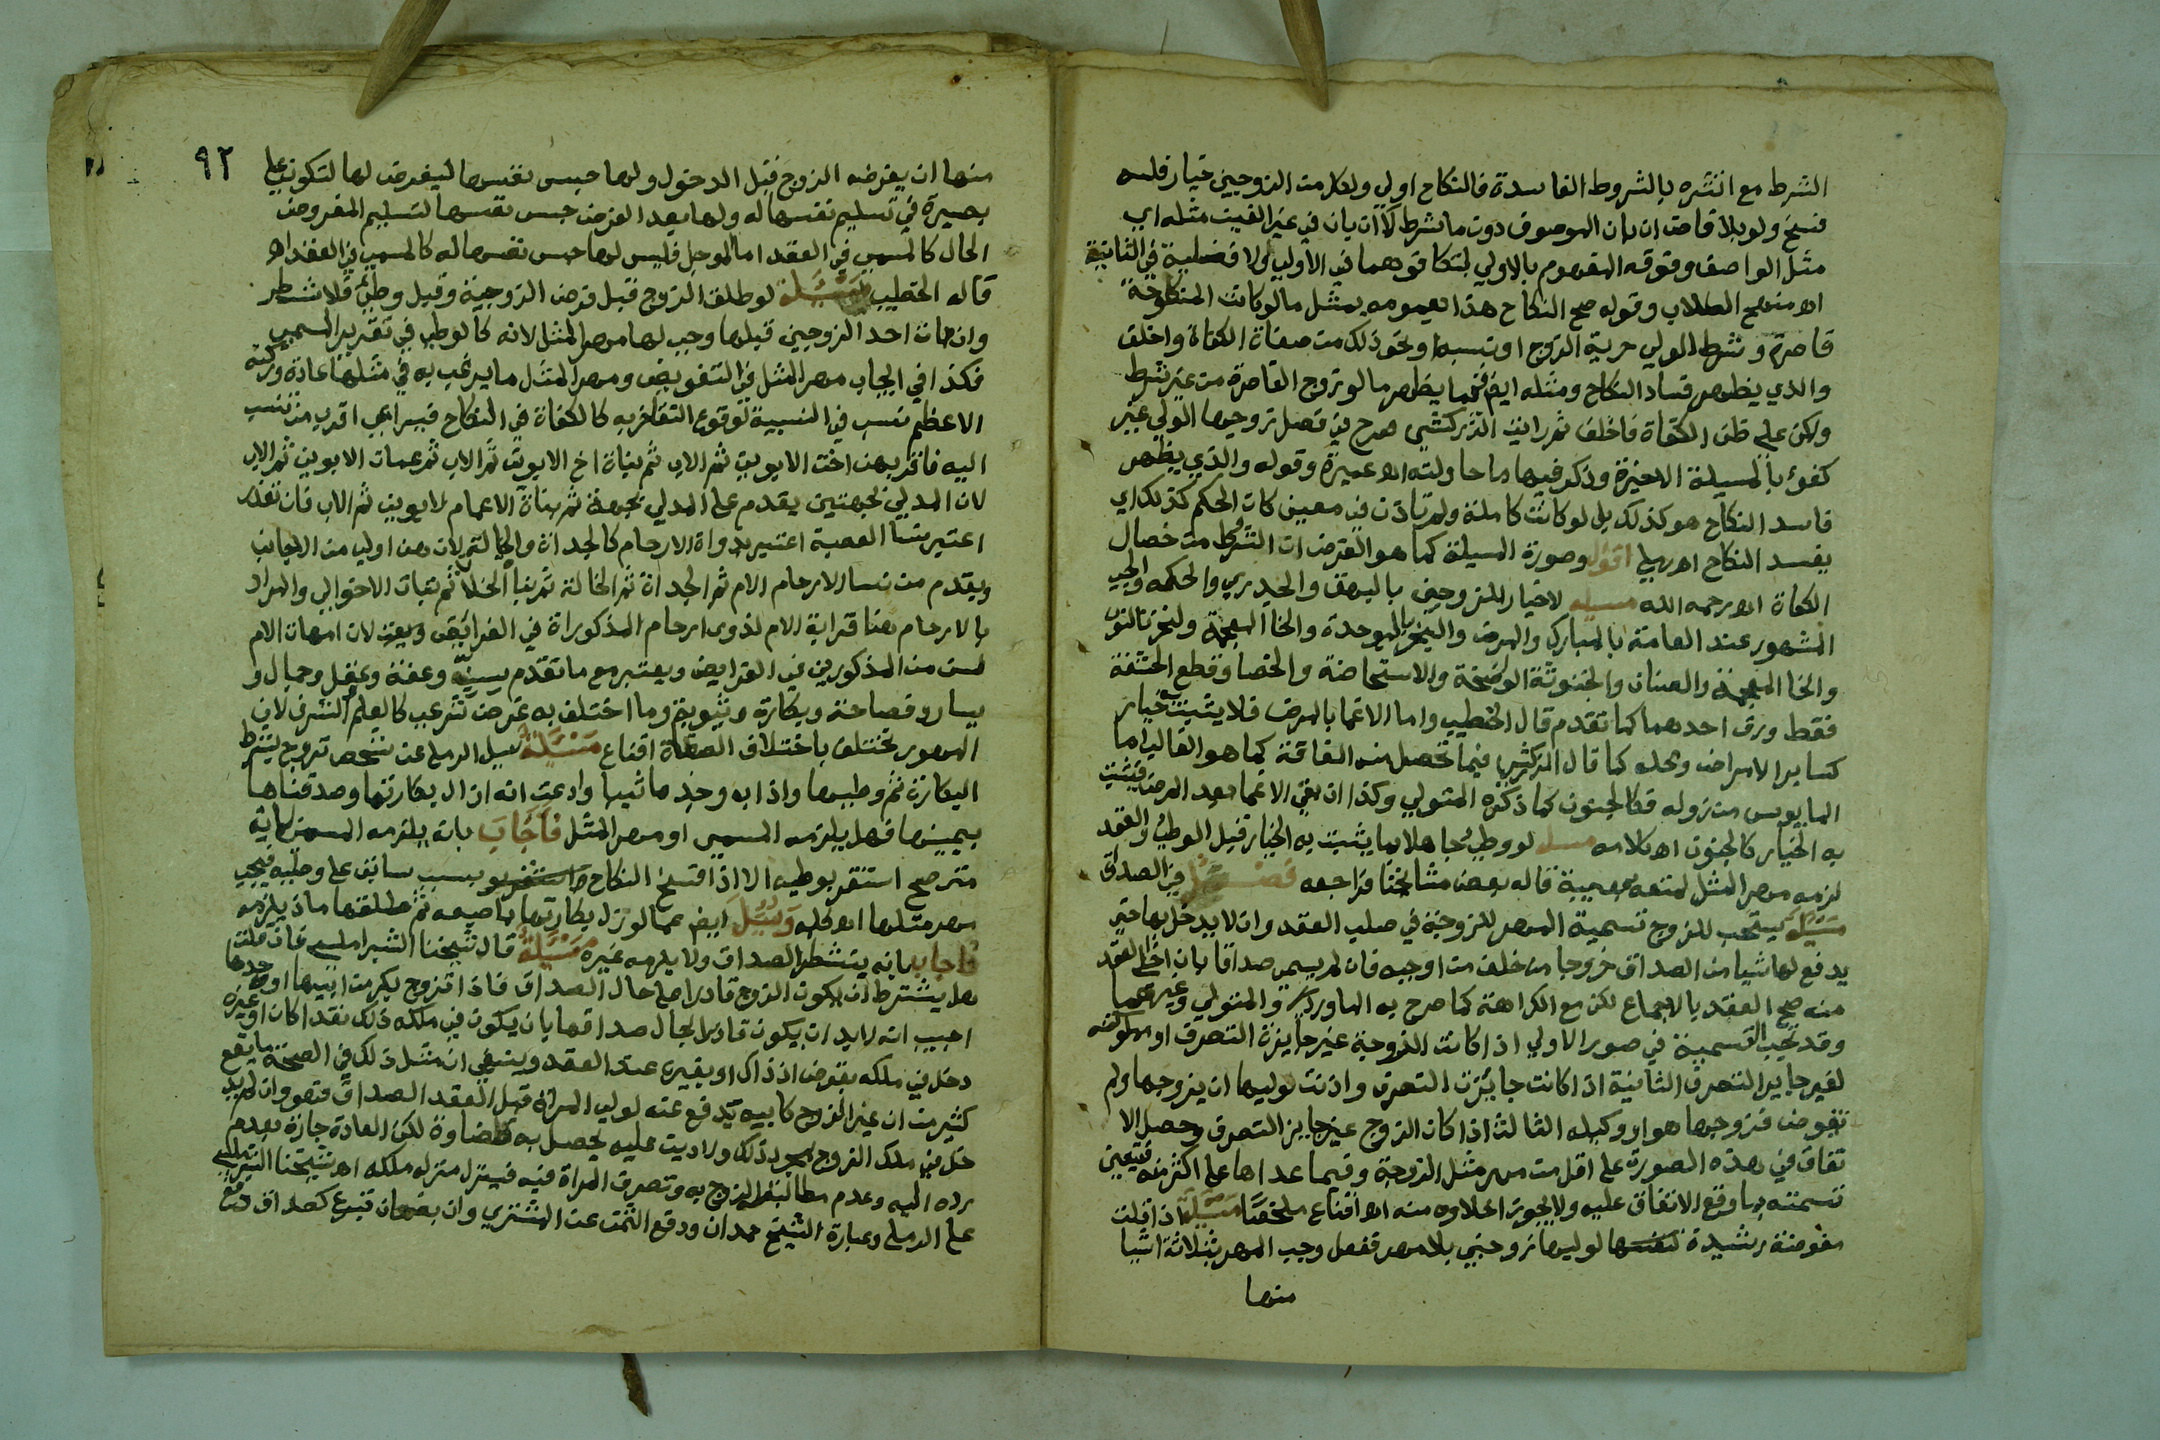 الشرط مع انشره بالشروط الفاسدة فالنكاح اولي ولكل من الزوجين خيار فلمه
فسخ ولو بلا قاض ان بان الموصوف دون ما شرط لا ان بان في غير العيب مثله اي
مثل الواصف وفوقه المفهوم بالاولي لتكافوهما في الاولي ولا فضلية في الثانية
اه منهج الطلاب وقوله صح النكاح هذا بعمومه يمثل ما لو كانت المنكوحة
قاصرة وشرط الولي حرية الزوج او نسبه او نحو ذلك من صفاة الكفاة واخلف
والذي يظهر فساد النكاح ومثله ايض فيما يظهر ما لو زوج القاصرة من غير شرط
ولكن علي ظن الكفاة فاخلف ثم رايت الزركشي صرح في فصل تزويجها الولي غير
كفوء بالمسيلة الاخيرة وذكر فيها ما حاولته اه عميرة وقوله والذي يظهر
فاسد النكاح هو كذلك بل لو كانت كاملة ولم تاذن في معين كان الحكم كذلك اي
يفسد النكاح اه رملي اقول وصورة المسيلة كما هو الفرض ان الشرط من خصال
الكفاة اه رحمه الله مسيله لا خيار للزوجين بالبهق والجدري والحكه والجب
المشهور عند العامة بالمبارك والمرض والبخر بالموحدة والخا المعجمة ولنخر بالنون
والخا المعجمة والصنان والخنوثة الواضحة والاستحاضة والخصا وقطع الحشفة
فقط ورق احدهما كما تقدم قال الخطيب واما الاغما بالمرض فلا يثبت به خيار
كساير الامراض ومحله كما قال الزركشي فيما تحصل منه الفاقة كما هو الغالب اما
المايوس من زوله فكالجنون كما ذكره المتولي وكذا ان بقي الاغما بعد المرض فيثبت
به الخيار كالجنون اه كلامه مسله لو وطي جاهلا بما يثبت به الخيار قبل الوطي والعقد
لزمه مهر المثل لمتعه بمعيبة قاله بعض مشايخنا فراجعه فصل في الصداق
مسيلة يستحب للزوج تسمية المهر للزوجة في صلب العقد وان لا يدخل بها حتي
يدفع لها شيا من الصداق خروجا من خلف من اوجبه فان لم يسمي صداقا بان اخلي العقد
منه صح العقد بالاجماع لكن مع الكراهة كما صرح به الماوردي والمتولي وغيرهما
وقد تجب التسمية في صور الاولي اذا كانت الزوجة غير جايزة التصرف او مملوكة
لغير جايز التصرف الثانية اذا كانت جايزت التصرف واذنت لوليها ان يزوجها ولم
تفوض فزوجها هو او وكيله الثالث اذا كان الزوج غير جايز التصرف وحصل الا
تفاق في هذه الصورة علي اقل من مهر مثل الزوجة وفيما عداها علي اكثر منه فيتعين
تسميته بما وقع الاتفاق عليه ولا يجوز اخلاوه منه اه اقناع ملخصا مسيلة اذا قالت
مفوضة رشيدة لوليها زوجني بلا مهر ففعل وجب المهر بثلاثة اشيا
منها
٩٢
منها ان يفرضه الزوج قبل الدخول ولها حبس نفسها ليفرض لها لتكون علي
بصيرة في تسليم نفسها له ولها بعد الفرض حبس نفسها لتسليم المفروض
الحال كالمسمي في العقد اما الموجل فليس لها حبس نفسها له كالمسمي في العقد اه
قاله الخطيب مسيلة لو طلق الزوج قبل فرض الزوجية وقبل وطئ فلا شطر
وان مات احد الزوجين قبلها وجب لها مهر المثل لانه كالوطي في تقرير المسمي
فكذا في ايجاب مهر المثل في التفويض ومهر المثل ما يرغب به في مثلها عادة وركنه
الاعظم نسب في النسيبة لوقوع التفاخر به كالكفاة في النكاح فيراعي اقرب من تنسب
اليه فاقربهن اخت الابوين ثم الاب ثم بناة اخ الابوين ثم الاب ثم عمات الابوين ثم الاب
لان المدلي بجهتين يقدم علي المدلي بجهة ثم بناة الاعمام لابوين ثم الاب فان تعذر
اعتبر بنسا العصبة اعتبر بذواة الارحام كالجداة والخالة لان هن اولي من الاجانب
ويقدم من نسا الارحام الام ثم الجداة ثم الخالة ثم بنات الاخوالي والمراد
بالارحام هنا قرابة الام لذوي ارحام المذكوراة في الفرائض لان امهات الام
لسن من المذكورين في الفرايض ويعتبر مع ما تقدم سن وعفة وعقل وجمال و
يسار وفصاحة وبكارة وثيوبة وما اختلف به غرض ترغب كالعلم والشرف لان
المهور تختلف باختلاف الصفاة اقناع مسيلة سيل الرملي عن شخص تزوج بشرط
البكارة ثم وطيها واذا به وجدها ثيبا وادعت انه ازال بكارتها وصدقناها
بيمينها فهل يلزمه المسمي او مهر المثل فأجاب بانه يلزمه المسمي لانه
متي صح استقر بوطيه الا اذا فسخ النكاح بسبب سابق علي وطيه فيجب
مهر مثلها اه كله وسيل ايض عما لو زال بكارتها باصبعه ثم طلقها ماذا يلزمه
فاجاب بانه يتشطر الصداق ولا يلزمه غيره مسيلة قال شيخنا الشبراملسي فان قلت
هل يشترط ان يكون الزوج قادرا علي حال الصداق فاذا تزوج بكر من ابيها او جدها
اجيب انه لابد ان يكون قادرا بحال صداقها بان يكون في ملكه ذلك نقدا كان او غيره
دخل في ملكه بقرض اذ ذاك او بغيره عند العقد وينبغي ان مثل ذلك في الصحة ما يقع
كثير من ان غير الزوج كابيه يدفع عنه لولي المراة قبل العقد الصداق فهو وان لم يد
خل في ملك الزوج بمجرد ذلك ولا دين عليه يحصل به لكن العادة جازة بعدم
رده اليه وعدم مطالبة الزوج به وتصرف المراة فيه فينزل منزله ملكه اه شيخنا الشبراملسي
علي الرملي وعبارة الشيخ حمدان ودفع الثمن عن المشتري وان بضمان تبرع كصداق دفع